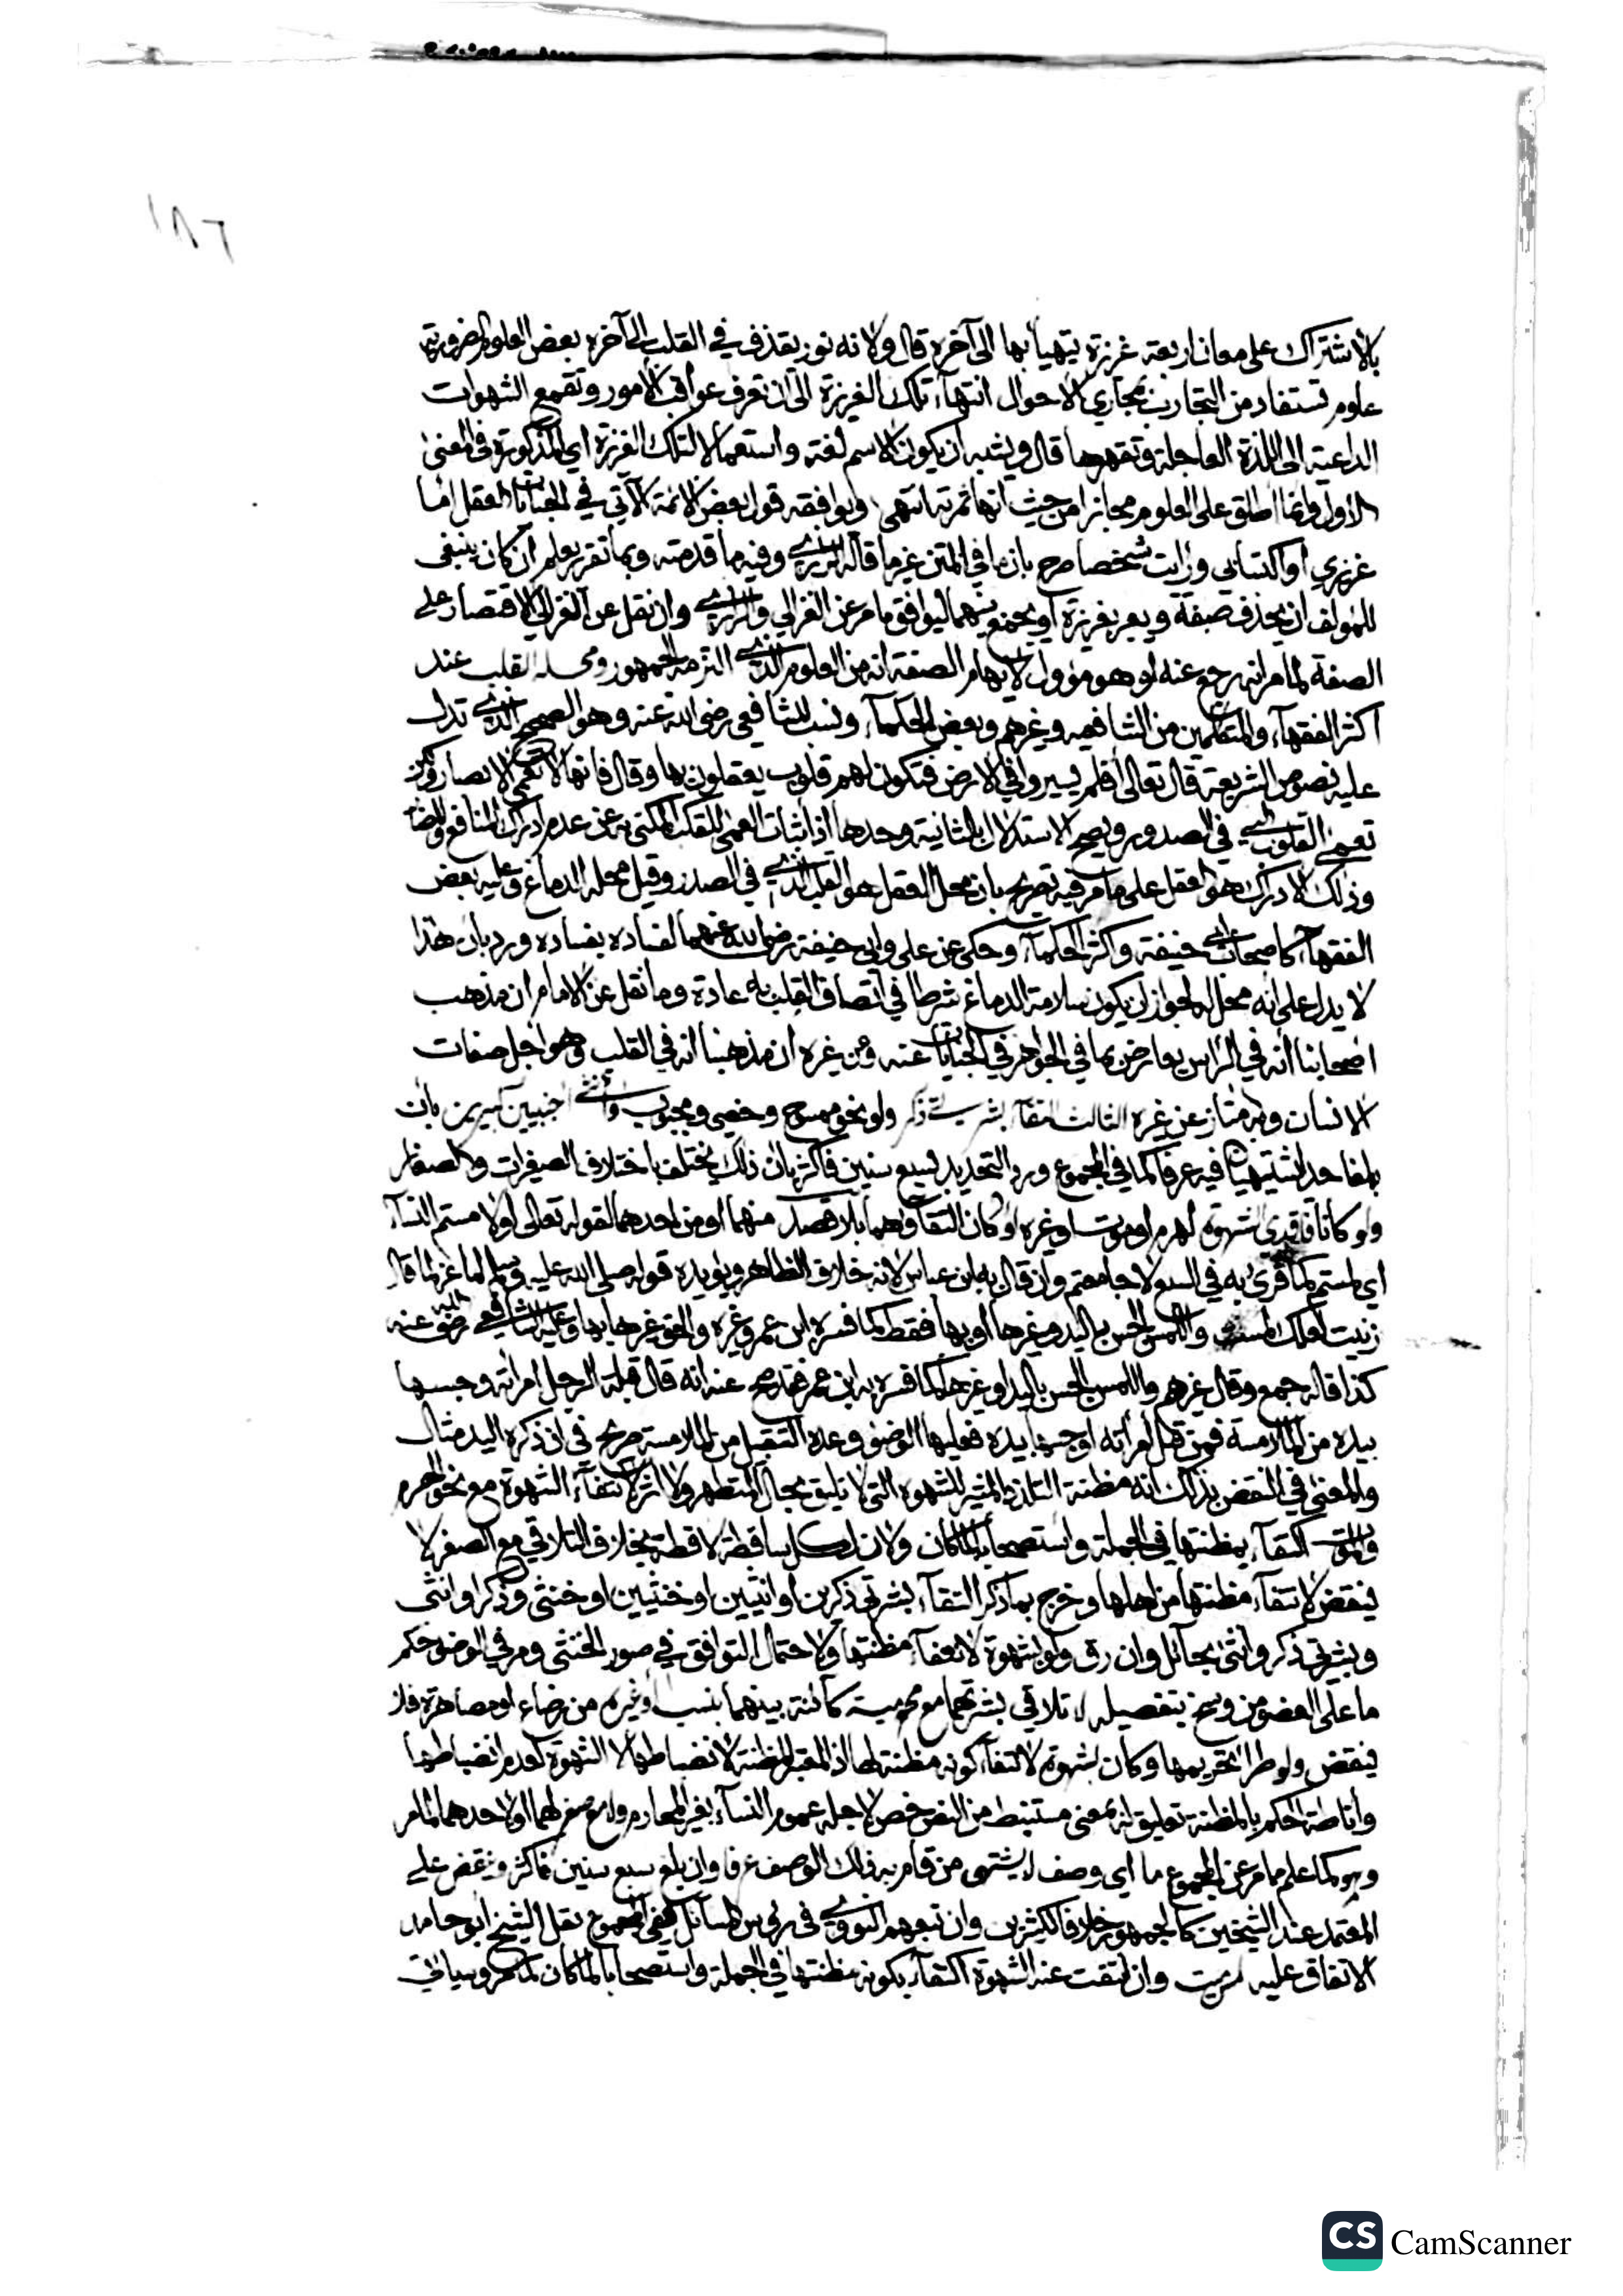 ١٨٦
بالاشتراك على معان اربعة غريزة يتهيأ بها الى آخره قال ولانه نور يقذف في القلب الى آخره بعض العلوم الضرورية
علوم تستفاد من التجارب بمجاري الاحوال انتهاء تلك الغريزة الى ان تعرف عواقب الامور وتقمع الشهوات
الداعية الى اللذة العاجلة وتقهرها قال ويشبه ان يكون الاسم لغة واستعمالا لتلك الغريزة اي المذكورة في المعنى
الاول وانما اطلق على العلوم مجازا من حيث انها ثمرته انتهى ويوافقه قول بعض الائمة الآتي في الجنايات العقل اما
غريزي او اكتسابي ورأيت شخصا صرح بان ما في المتن غير ما قاله وفيه ما قدمته وبما تقرر يعلم ان كان ينبغي
للمؤلف ان يحذف صفة ويعبر بغريزة او يجمع بينهما ليوافق ما مر عن الغزالي وان نقل عن الغزالي الاقتصار على
الصفة لما مر انه رجع عنه او هو مؤول لايهام الصفة انه من العلوم الذي التزمه الجمهور ومحله القلب عند
اكثر الفقهاء والمتكلمين من الشافعيه وغيرهم وبعض الحكماء ونسب للشافعي رضي الله عنه وهو الصحيح الذي تدل
عليه نصوص الشريعة قال تعالى أفلم يسيروا في الارض فتكون لهم قلوب يعقلون بها وقال فانها لا تعمى الابصار ولكن
تعمى القلوب التي في الصدور ويصح الاستدلال بالثانية وحدها اذ اثبات العمى للقلب المكنى به عن عدم ادراك المنافع والمضار
وذلك الادراك هو العقل على ما مر فيه تصريح بان محل العقل هو القلب الذي في الصدر وقيل محله الدماغ وعليه بعض
الفقهاء كاصحاب ابي حنيفة واكثر الحكماء وحكي عن علي وابي حنيفة رضي الله عنهما لفساده بفساده ورد بان هذا
لا يدل على انه محل له لجواز ان يكون سلامة الدماغ شرطا في اتصاف القلب به عادة وما نقل عن الامام ان مذهب
اصحابنا أنه في الرأس يعارض بما في الجواهر في الجنايات عنه وعن غيره ان مذهبنا انه في القلب وهو اجل صفات
الانسان وبه يمتاز عن غيره الثالث التقاء بشرتي ذكر ولو نحو ممسوح وخصي ومجبوب وانثى اجنبيين كبيرين بان
بلغا حدا يشتهيان فيه عرفا كما في المجموع ورد التحديد بسبع سنين فاكثر بان ذلك يختلف باختلاف الصغيرات والصغار
ولو كانا فاقدي شهوة لهرم او موت او غيره او كان التقاؤهما بلا قصد منهما او من احدهما لقوله تعالى اولامستم النساء
اي لمستم كما قرئ به في السبع لا جامعتم وان قال به ابن عباس لانه خلاف الظاهر ويؤيده قوله صلى الله عليه وسلم لماعز لما قال
زنيت لعلك لمست واللمس الجس باليد وغيرها او بها فقط كما فسره ابن عمر وغيره والحق غيرها بها وعليه الشافعي رضي الله عنه
كذا قاله جمع وقال غيرهم واللمس الجس باليد او غيرها كما فسره به ابن عمر فقد صح عنه انه قال قبلة الرجل امرأته وجسها
بيده من الملامسة فمن قبل امرأته او جسها بيده فعليه الوضوء وعده التقبيل من الملامسة صريح في ان ذكره اليد مثال
والمعنى في النقض بذلك انه مظنة التلذذ المثير للشهوة التي لا يليق بحال المتطهر ولا اثر لانتفاء الشهوة مع نحو الهرم
والموت اكتفاء بمظنتها في الجملة واستصحابا لما كان ولان لكل ساقطة لاقطة بخلاف التلاقي مع الصغر لا
ينقض لانتفاء مظنتها من اهلها وخرج بما ذكر التقاء بشرتي ذكرين او انثيين او خنثيين او خنثى وذكر او انثى
وبشرتي ذكر وانثى بحائل وان رق ولو بشهوة لانتفاء مظنتها ولاحتمال التوافق في صور الخنثى ومر في الوضوء حكم
ما على العضو من وسخ بتفصيله لا تلاقي بشرتيهما مع محرمية كائنة بينهما بنسب او غيره من رضاع او مصاهرة فلا
ينقض ولو طرأ تحريمها وكان بشهوة لانتفاء كونه مظنة لها اذ المعتبر المظنة لانضباطها لا الشهوة لعدم انضباطها
وأناطة الحكم بالمظنة تعليق له بمعنى مستنبط من النص خص لاجله عموم النساء بغير المحارم ولا مع صغر لهما او لاحدهما لما مر
وهو كما علم مما مر عن المجموع ما اي وصف لا يشتهى من قام به ذلك الوصف عرفا وان بلغ سبع سنين فاكثر وينقض على
المعتمد عند الشيخين كالجمهور خلافا لكثيرين وان تبعهم النووي في رؤس المسائل ففي المجموع نقل الشيخ ابو حامد
الاتفاق عليه ميت وان انتفت عنه الشهوة اكتفاء بكونه مظنتها في الجملة واستصحابا لما كان لما مر وسيأتي
CS CamScanner